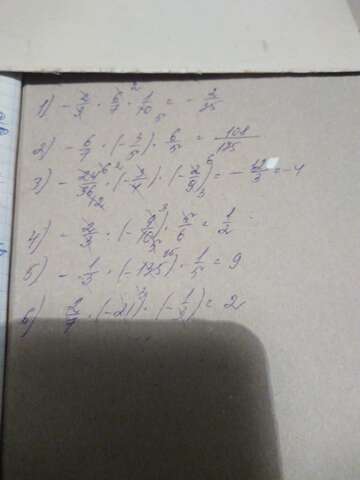 1) - 2/3 · 6/7 · 1/10 = - 2/35
2) - 6/7 · (- 3/5) · 6/5 = 108/175
3) - 24/36 · (- 3/4) · (- 2/9) = - 12/3 = -4
4) - 2/3 · (- 9/10) · 5/6 = 1/2
5) - 1/3 · (- 135) · 1/5 = 9
6) · (-21) · (- 1/3) = 2